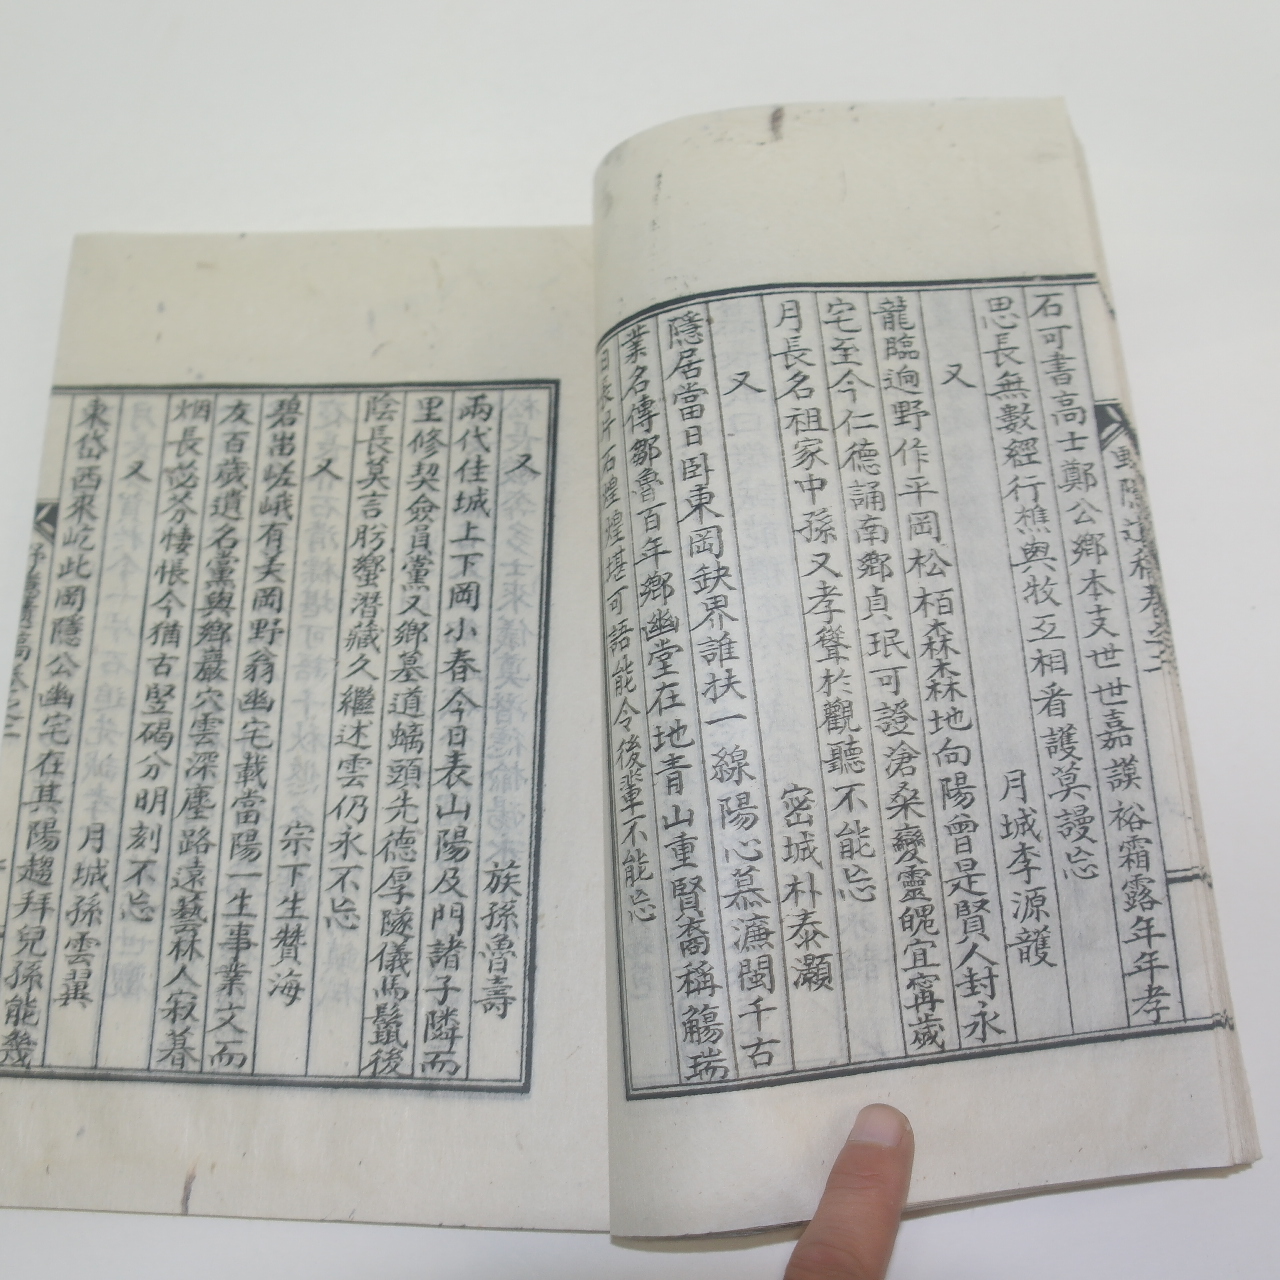 石可書高士鄭公鄉本支世世嘉謨裕霜露年年孝
思長無數經行樵與牧互相看護莫謾忘
又
月城李源頀
龍臨逈野作平岡松栢森森地向陽曾是賢人封永
宅至今仁德誦南鄉貞珉可證滄桑變靈魄宜寗歲
月長名祖家中孫又孝聳於觀聽不能忘
又
密城朴泰灝
隱居當日卧東岡缺界誰扶一線陽心慕濂閩千古
業名傳鄒魯百年鄉幽堂在地靑山重賢裔稱觴瑞
日長片石煌煌堪可語能令後輩不能忘
又
族孫魯壽
兩代佳城上下岡小春今日表山陽及門諸子隣而
里修契僉員黨又鄉墓道螭頭先德厚隧儀馬鬛後
陰長莫言肹蠁潛藏久繼述雲仍永不忘
又
宗下生贊海
碧出嵯峨有美岡野翁幽宅載當陽一生事業文而
友百歲遺名黨與鄉巖穴雲深塵路遠藝林人寂暮
烟長苾芬悽悵今猶古竪碣分明刻不忘
又
月城孫雲翼
東岱西來屹此岡隱公幽宅在其陽趨拜兒孫能幾